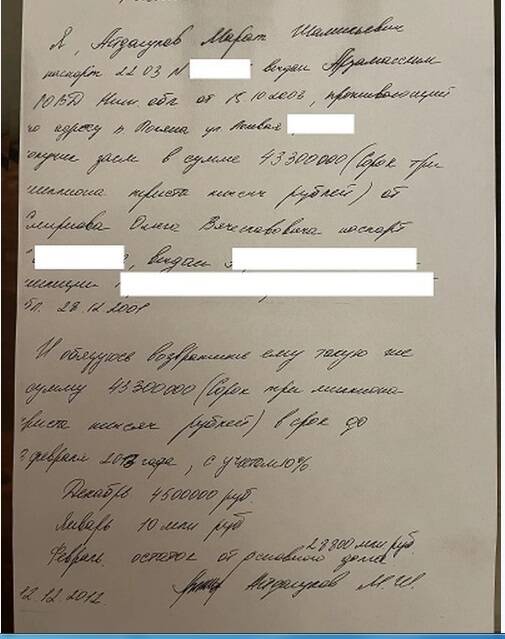 Я, Айдагулов Марат Шамильевич
паспорт 22 03 N выдан Арзамасским
РОВД Ниж. обл от 13.10.2003, проживающий
по адресу п. Поляна ул. Новая
получил заем в сумме 43300000 (Сорок три
миллиона триста тысяч рублей) от
Смирнова Олега Вячеславовича паспорт
, выдан
милиции
28.12.2001
И обязуюсь возвратить ему такую же
сумму 43300000 (Сорок три миллиона
триста тысяч рублей) в срок до
февраля 2013 года, с учетом 10%.
Декабрь 4500000 руб
Январь 10 млн руб
28800 млн руб
Февраль остаток от основного долга
12.12.2012 Айдагулов М.Ш.